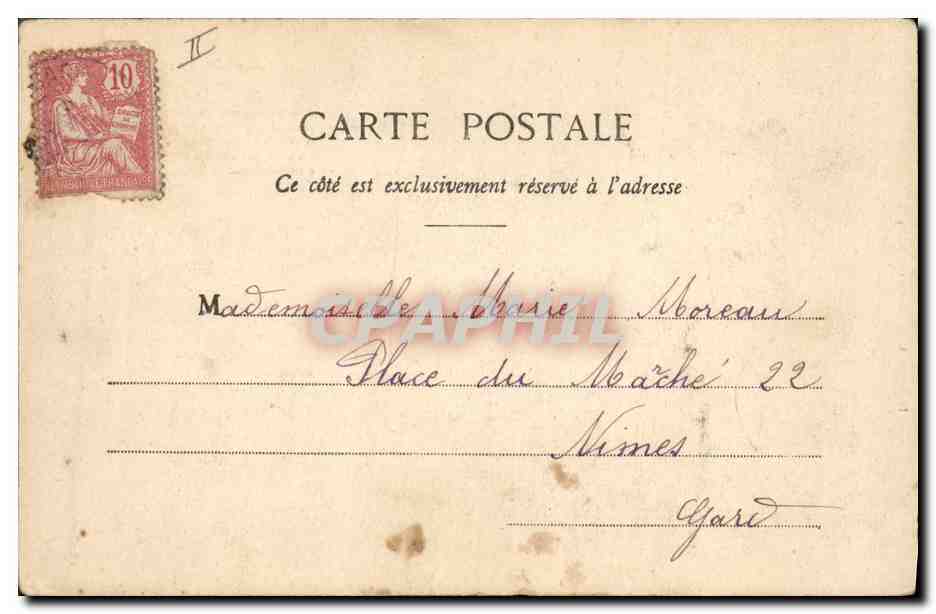 II
10
CARTE POSTALE
Ce côté est exclusivement réservé à l'adresse
Mademoiselle Marie Moreau
CPAPHIL
Place du Marché 22
Nimes
Gard